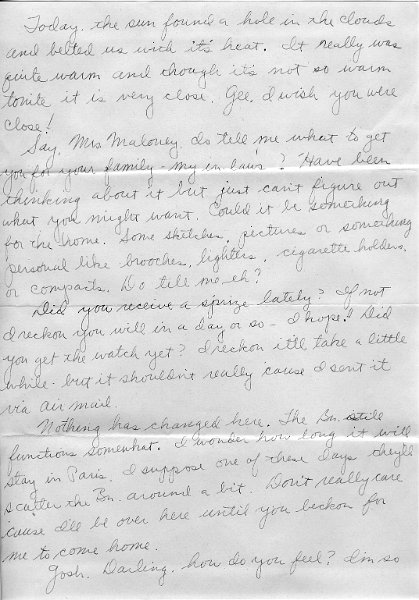 Today, the sun found a hole in the clouds
and belted us with it's heat. It really was
quite warm and though it's not so warm
tonite it is very close. Gee, I wish you were
close!
Say, Mrs Maloney, do tell me what to get
you for your family - my in laws? Have been
thinking about it but just can't figure out
what you might want. Could it be something
for the home. Some sketches, pictures or something
personal like brooches, lighters, cigarette holders,
or compacts. Do tell me, eh?
Did you receive a lately? If not
I reckon you will in a day or so - I hope! Did
you get the watch yet? I reckon it'll take a little
while - but it shouldn't really 'cause I sent it
via air mail.
Nothing has changed here. The Bn. still
functions somewhat. I wonder how long it will
stay in Paris. I suppose one of these days they'll
scatter the Bn. around a bit. Don't really care
'cause I'll be over here until you beckon for
me to come home.
Gosh, Darling, how do you feel? I'm so